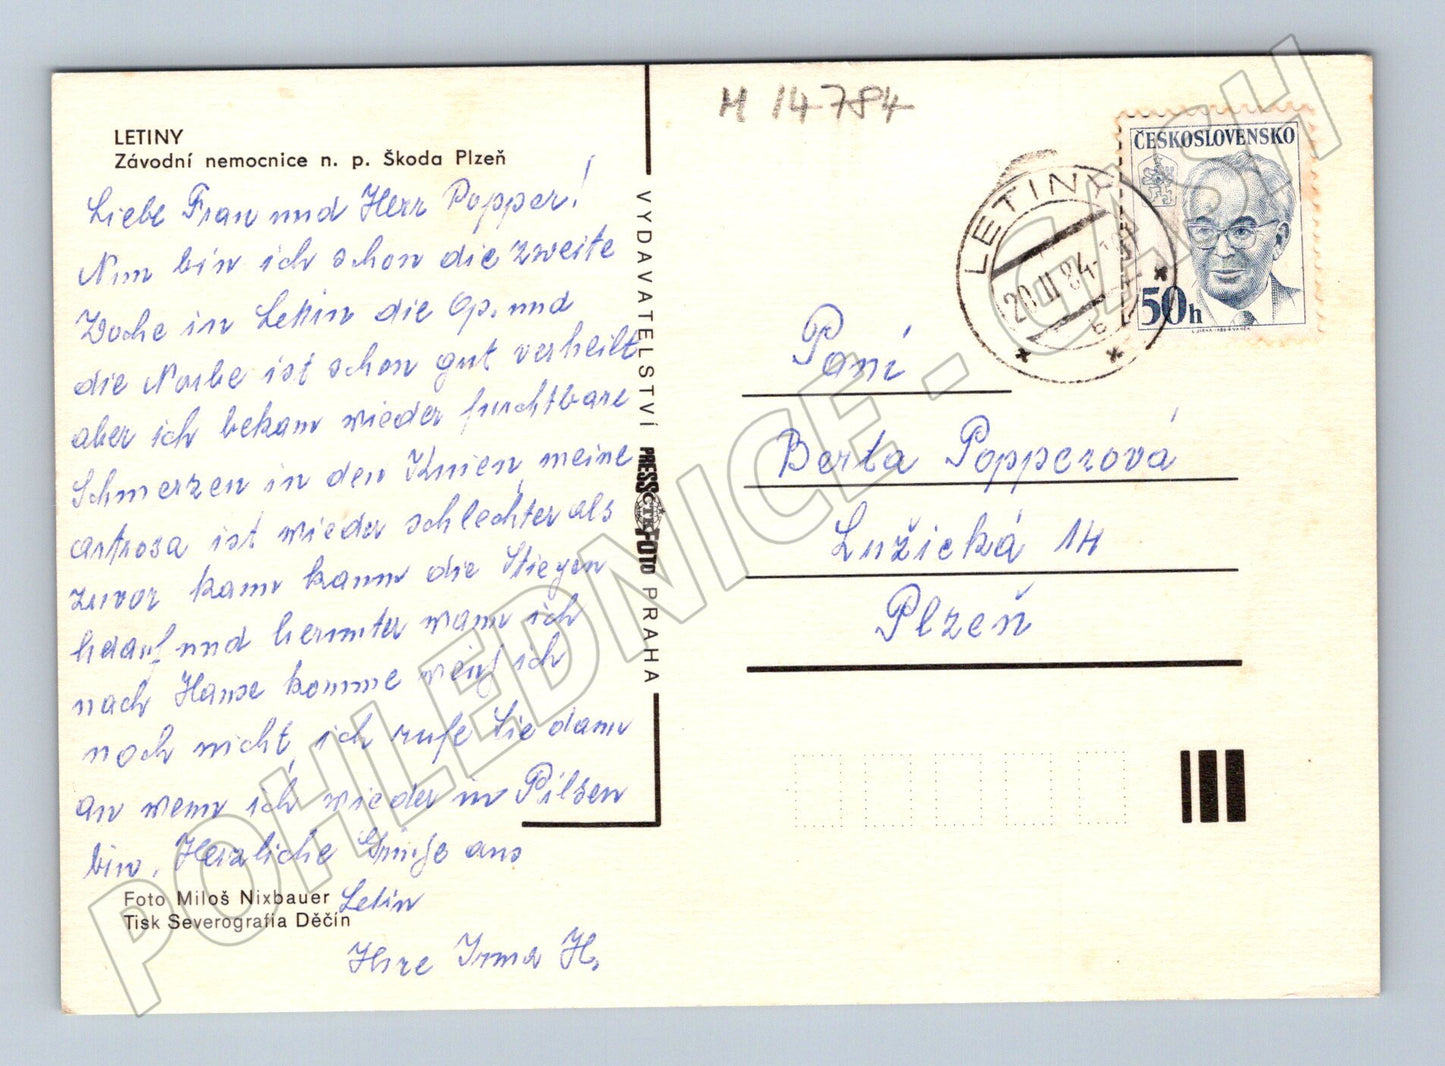 LETINY
Závodní nemocnice n. p. Škoda Plzeň
Liebe Frau und Herr Popper!
Nun bin ich schon die zweite
Woche in Letin die Op. und
die Narbe ist schon gut verheilt
aber ich bekam wieder furchtbare
Schmerzen in den Knien, meine
artrosa ist wieder schlechter als
zuvor kann kaum die Stiegen
herauf und herunter wann ich
nach Hause komme weiß ich
noch nicht, ich rufe Sie dann
an wenn ich wieder in Pilsen
bin. Herzliche Grüße aus
Letin
Ihre Irma H.
Foto Miloš Nixbauer
Tisk Severografia Děčín
VYDAVATELSTVÍ PRESSFOTO PRAHA
ČTK
M 14784
LETINY
20.II.84
ČESKOSLOVENSKO
50h
Paní
Berta Popperová
Lužická 14
Plzeň
POHLEDNICE - CASH